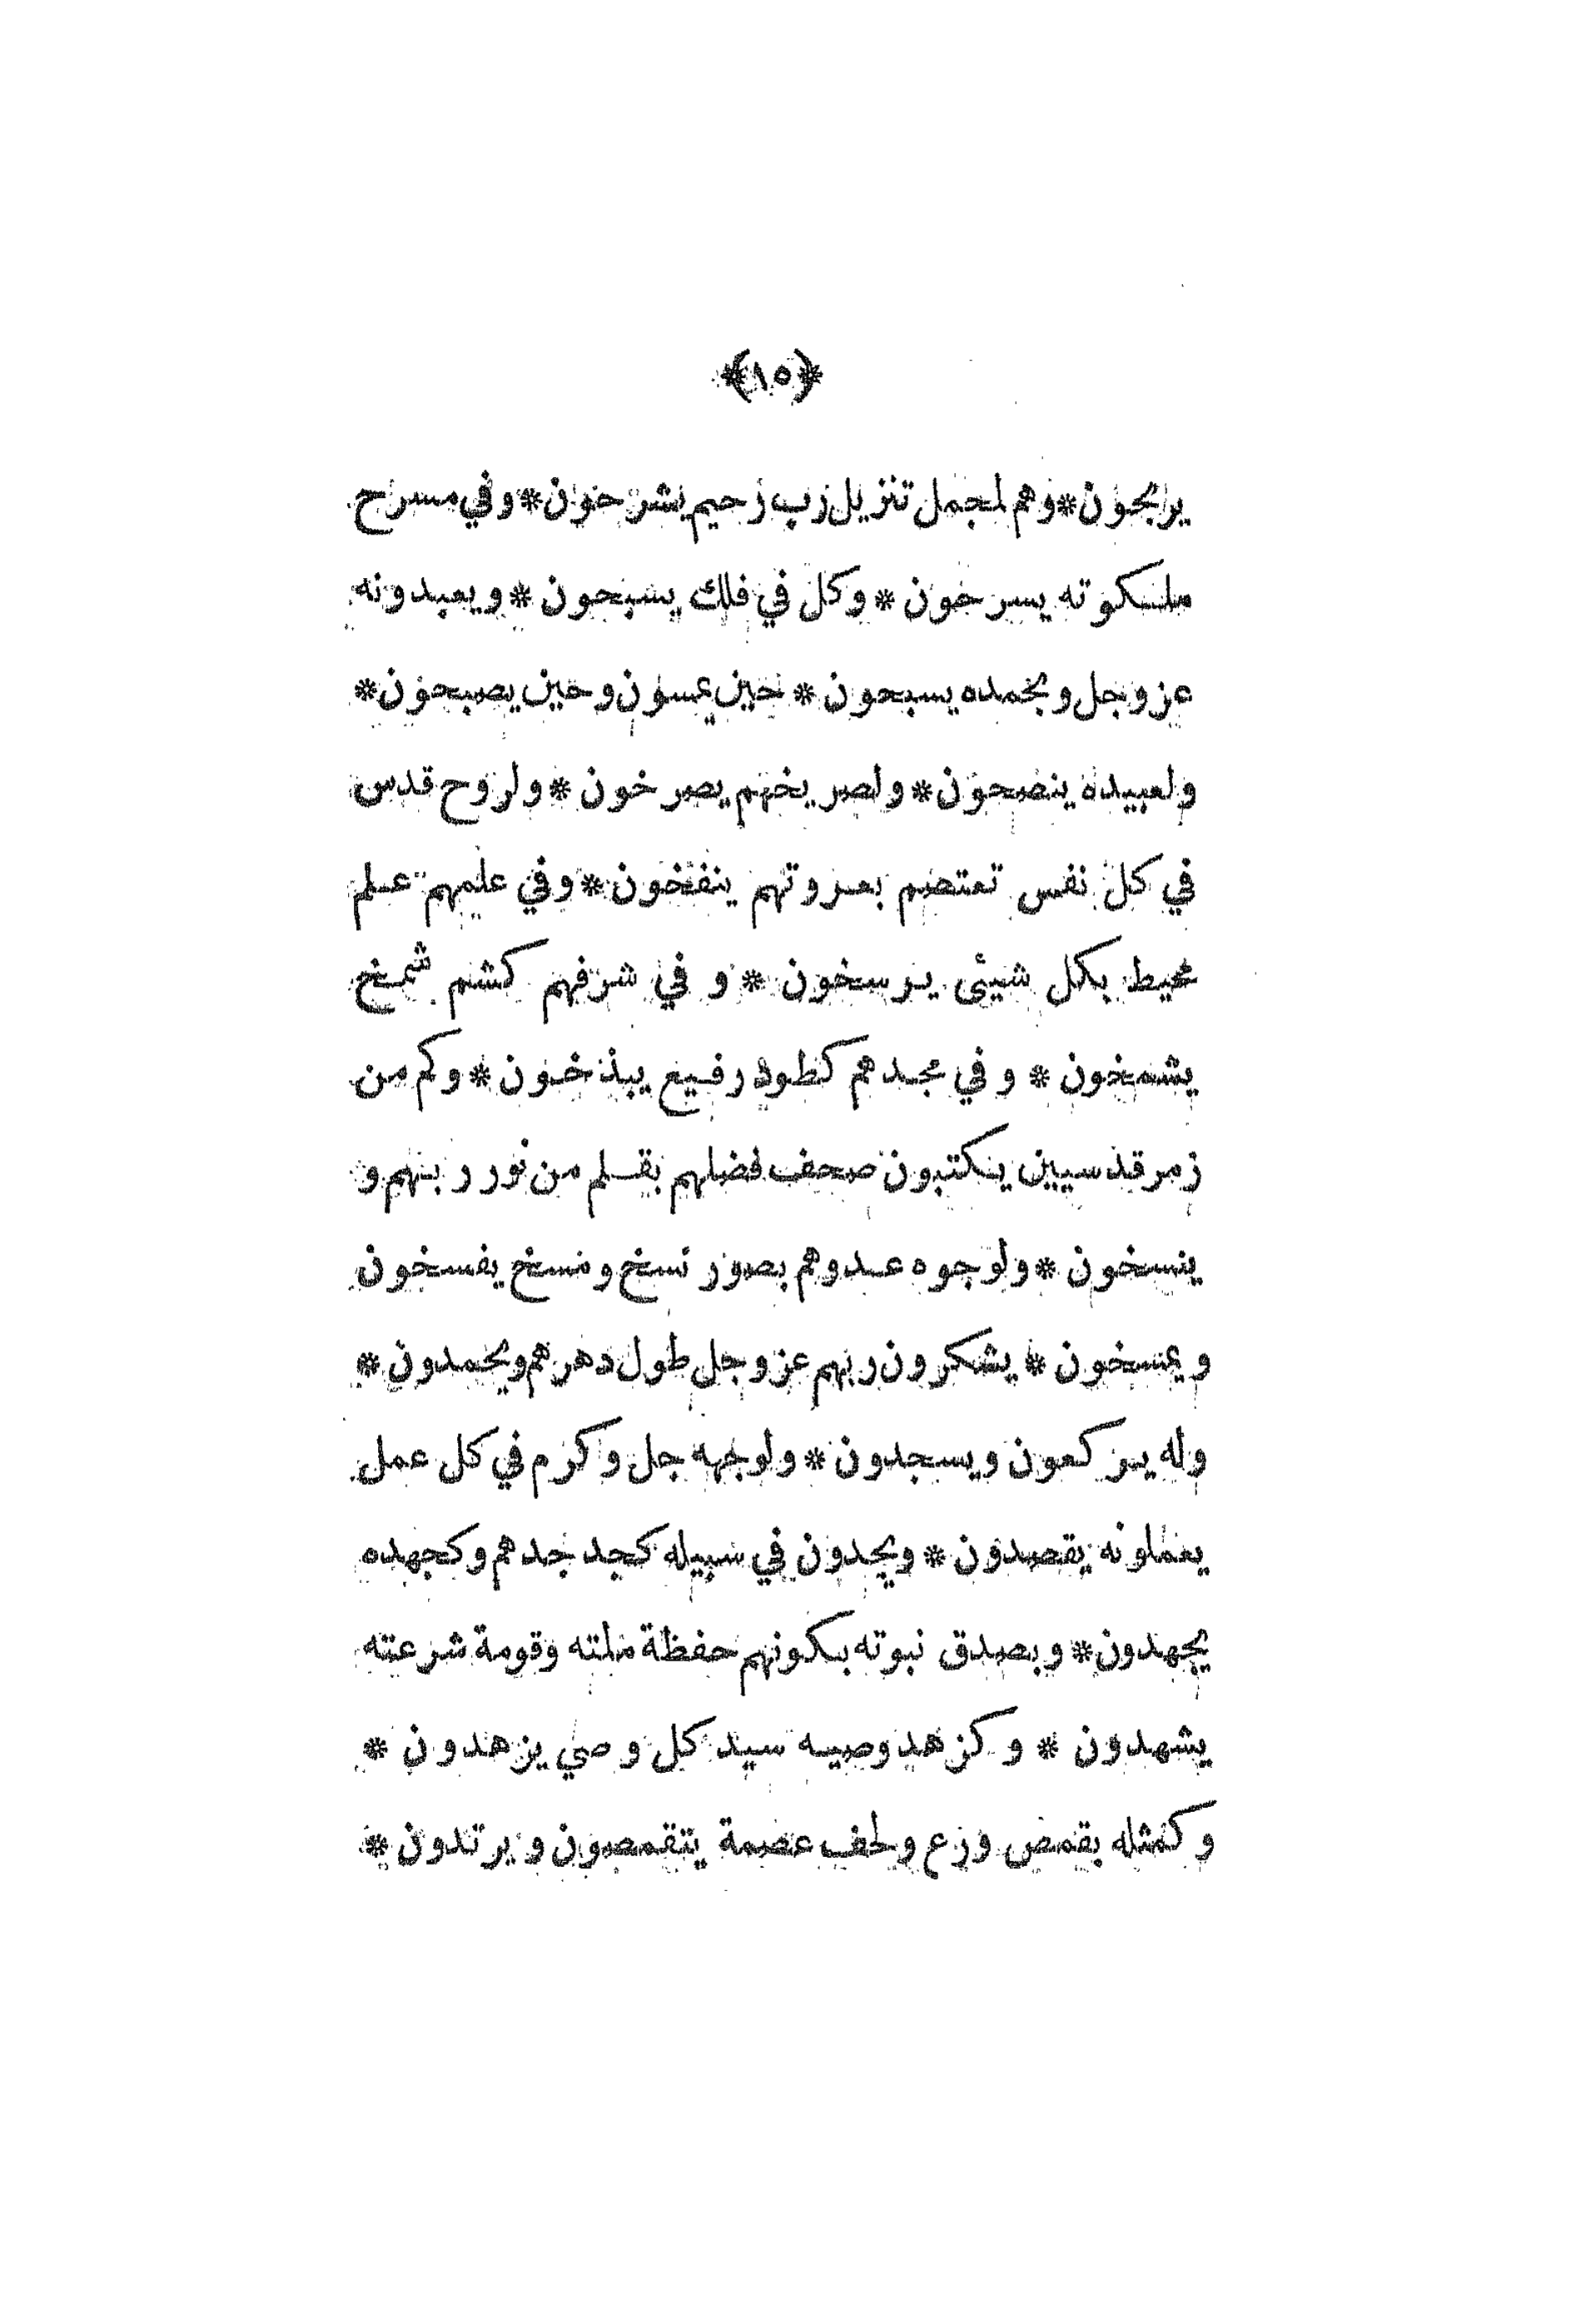 ﴿١٥﴾
يرابحون * وهم لمجمل تنزيل رب رحيم يشرحون * وفي مسرح
ملكوته يسرحون * وكل في فلك يسبحون * ويعبدونه
عز وجل وبحمده يسبحون * حين يمسون وحين يصبحون *
ولعبيده ينصحون * ولصريخهم يصرخون * ولروح قدس
في كل نفس تعتصم بعروتهم ينفخون * وفي علمهم علم
محيط بكل شيئى يرسخون * و في شرفهم كشم شمخ
يشمخون * و في مجدهم كطود رفيع يبذخون * وكم من
زمر قدسيين يكتبون صحف فضلهم بقلم من نور ربهم و
ينسخون * ولوجوه عدوهم بصور نسخ ومسخ يفسخون
و يمسخون * يشكرون ربهم عز وجل طول دهرهم ويحمدون *
وله يركعون ويسجدون * ولوجهه جل وكرم في كل عمل
يعملونه يقصدون * ويجدون في سبيله كجد جدهم وكجهده
يجهدون * وبصدق نبوته بكونهم حفظة ملته وقومة شرعته
يشهدون * و كزهد وصيه سيد كل وصي يزهدون *
وكمثله بقمص ورع ولحف عصمة يتقمصون و يرتدون *